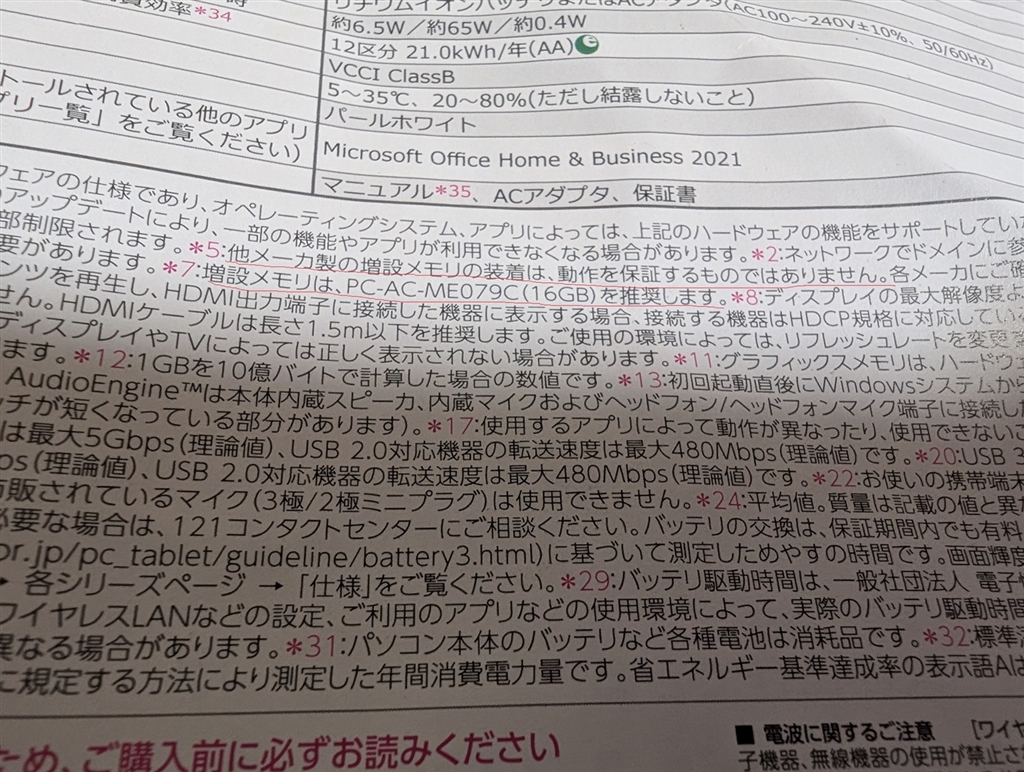 費効率*34
リチウムイオンバッテリまたはACアダプタ(AC100～240V±10%、50/60Hz)
約6.5W／約65W／約0.4W
12区分 21.0kWh/年(AA)
VCCI ClassB
5～35℃、20～80%(ただし結露しないこと)
パールホワイト
トールされている他のアプリ
プリ一覧」をご覧ください)
Microsoft Office Home & Business 2021
マニュアル*35、ACアダプタ、保証書
ウェアの仕様であり、オペレーティングシステム、アプリによっては、上記のハードウェアの機能をサポートしてい
のアップデートにより、一部の機能やアプリが利用できなくなる場合があります。*2:ネットワークでドメインに参
部制限されます。*5:他メーカ製の増設メモリの装着は、動作を保証するものではありません。各メーカにご確
要があります。*7:増設メモリは、PC-AC-ME079C(16GB)を推奨します。*8:ディスプレイの最大解像度よ
ンツを再生し、HDMI出力端子に接続した機器に表示する場合、接続する機器はHDCP規格に対応してい
せん。HDMIケーブルは長さ1.5m以下を推奨します。ご使用の環境によっては、リフレッシュレートを変更
ディスプレイやTVによっては正しく表示されない場合があります。*11:グラフィックスメモリは、ハードウ
ます。*12:1GBを10億バイトで計算した場合の数値です。*13:初回起動直後にWindowsシステムから
AudioEngine™は本体内蔵スピーカ、内蔵マイクおよびヘッドフォン/ヘッドフォンマイク端子に接続した
ッチが短くなっている部分があります)。*17:使用するアプリによって動作が異なったり、使用できないこ
は最大5Gbps(理論値)、USB 2.0対応機器の転送速度は最大480Mbps(理論値)です。*20:USB 3
ps(理論値)、USB 2.0対応機器の転送速度は最大480Mbps(理論値)です。*22:お使いの携帯端末
市販されているマイク(3極/2極ミニプラグ)は使用できません。*24:平均値。質量は記載の値と異な
必要な場合は、121コンタクトセンターにご相談ください。バッテリの交換は、保証期間内でも有料
or.jp/pc_tablet/guideline/battery3.html)に基づいて測定しためやすの時間です。画面輝度
各シリーズページ → 「仕様」をご覧ください。*29:バッテリ駆動時間は、一般社団法人 電子情
ワイヤレスLANなどの設定、ご利用のアプリなどの使用環境によって、実際のバッテリ駆動時間
異なる場合があります。*31:パソコン本体のバッテリなど各種電池は消耗品です。*32:標準
に規定する方法により測定した年間消費電力量です。省エネルギー基準達成率の表示語Aは
ため、ご購入前に必ずお読みください
■ 電波に関するご注意 [ワイヤ
子機器、無線機器の使用が禁止さ